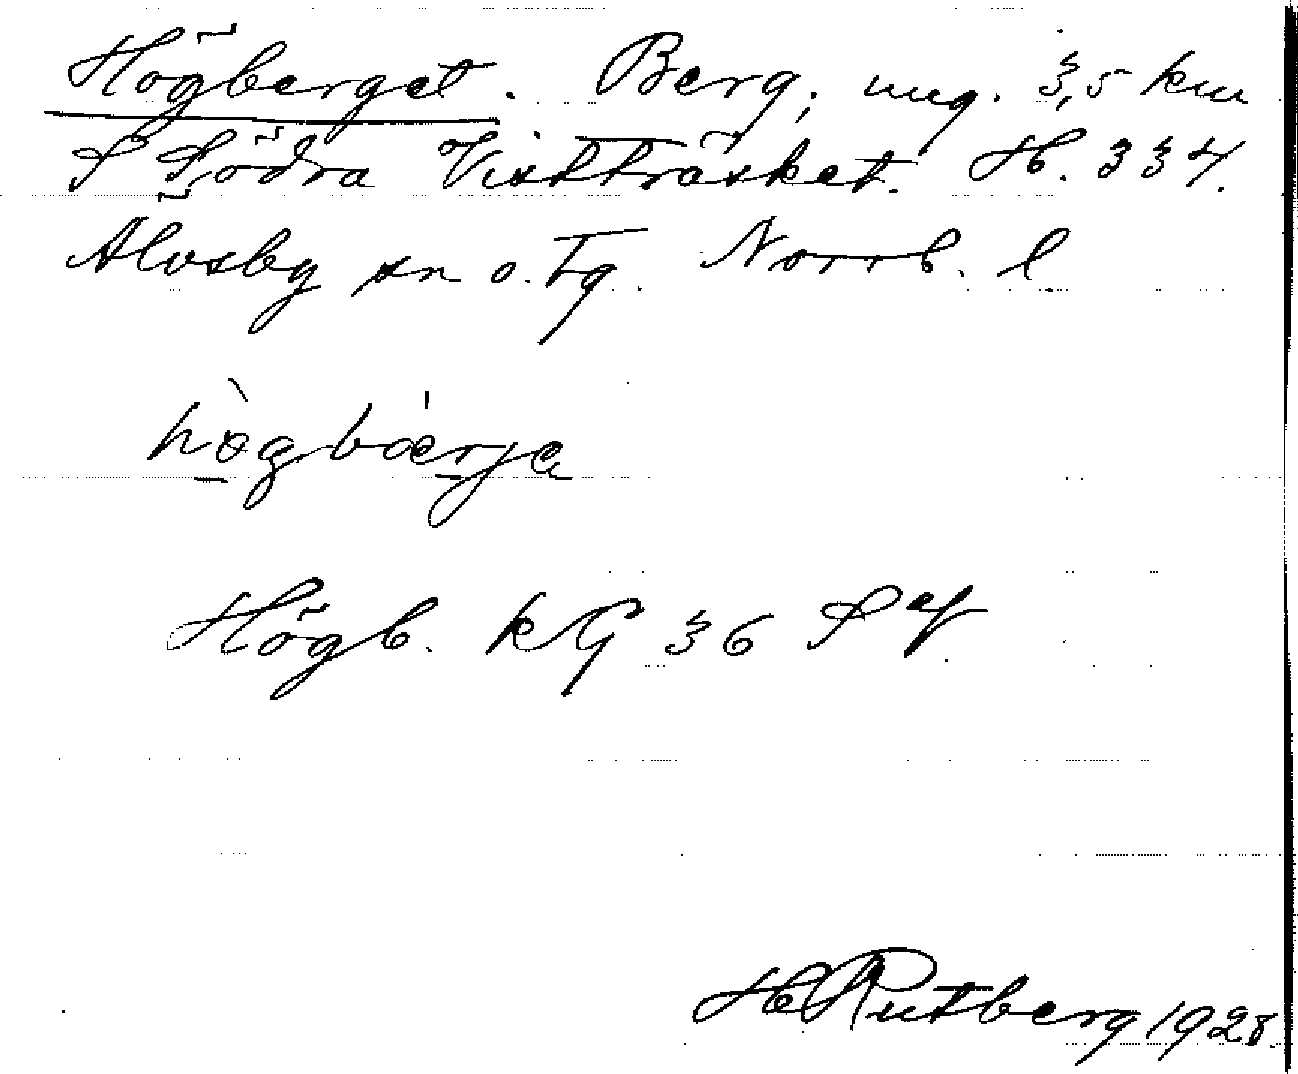 Högberget. Berg, ung. 3,5 km
S Södra Vistträsket. H. 334.
Älvsby sn o. tg. Norrb. l.
hògbærja
Högb. kG 36 S
H Rutberg 1928.